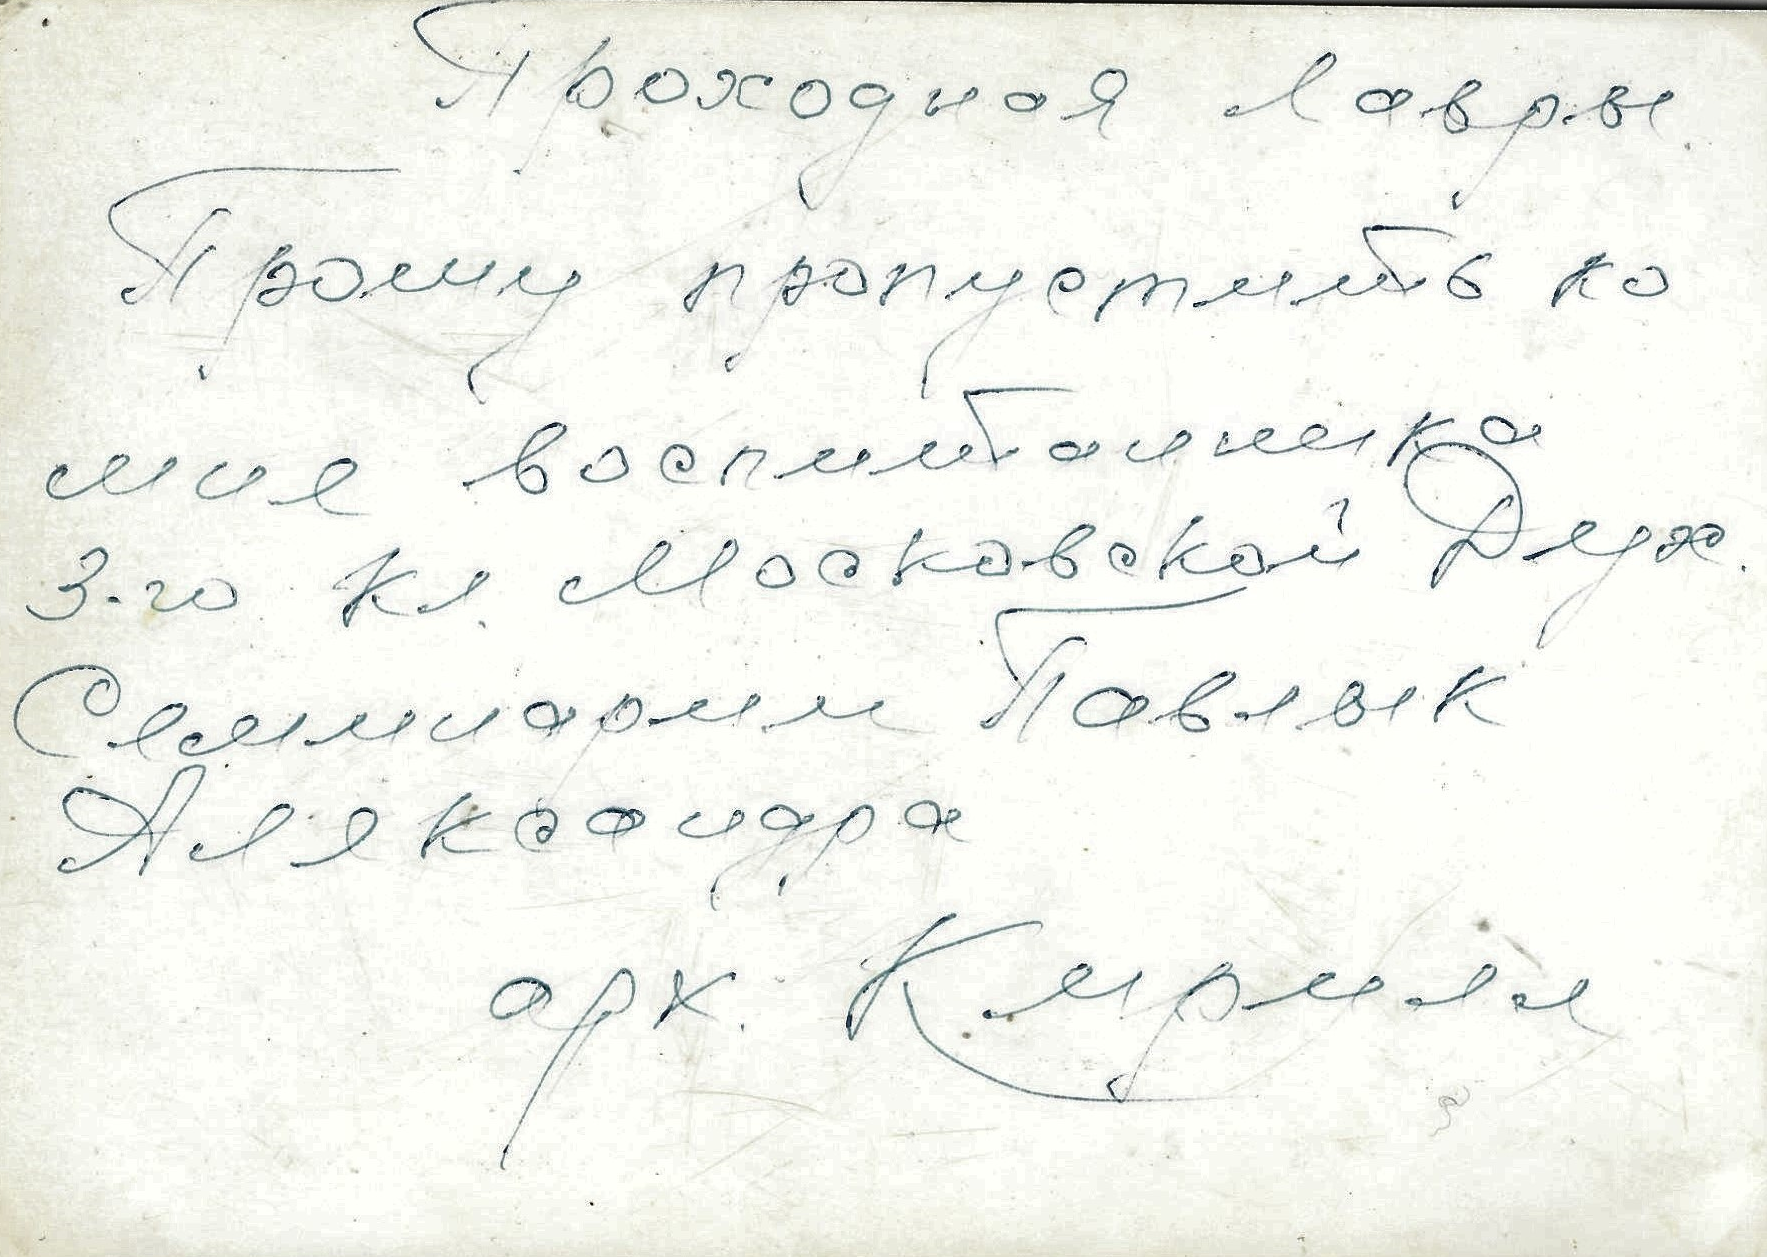 Проходная Лавры.
Прошу пропустить ко
мне воспитанника
3-го кл. Московской Дух.
Семинарии Павлык
Александра
арх. Кирилл